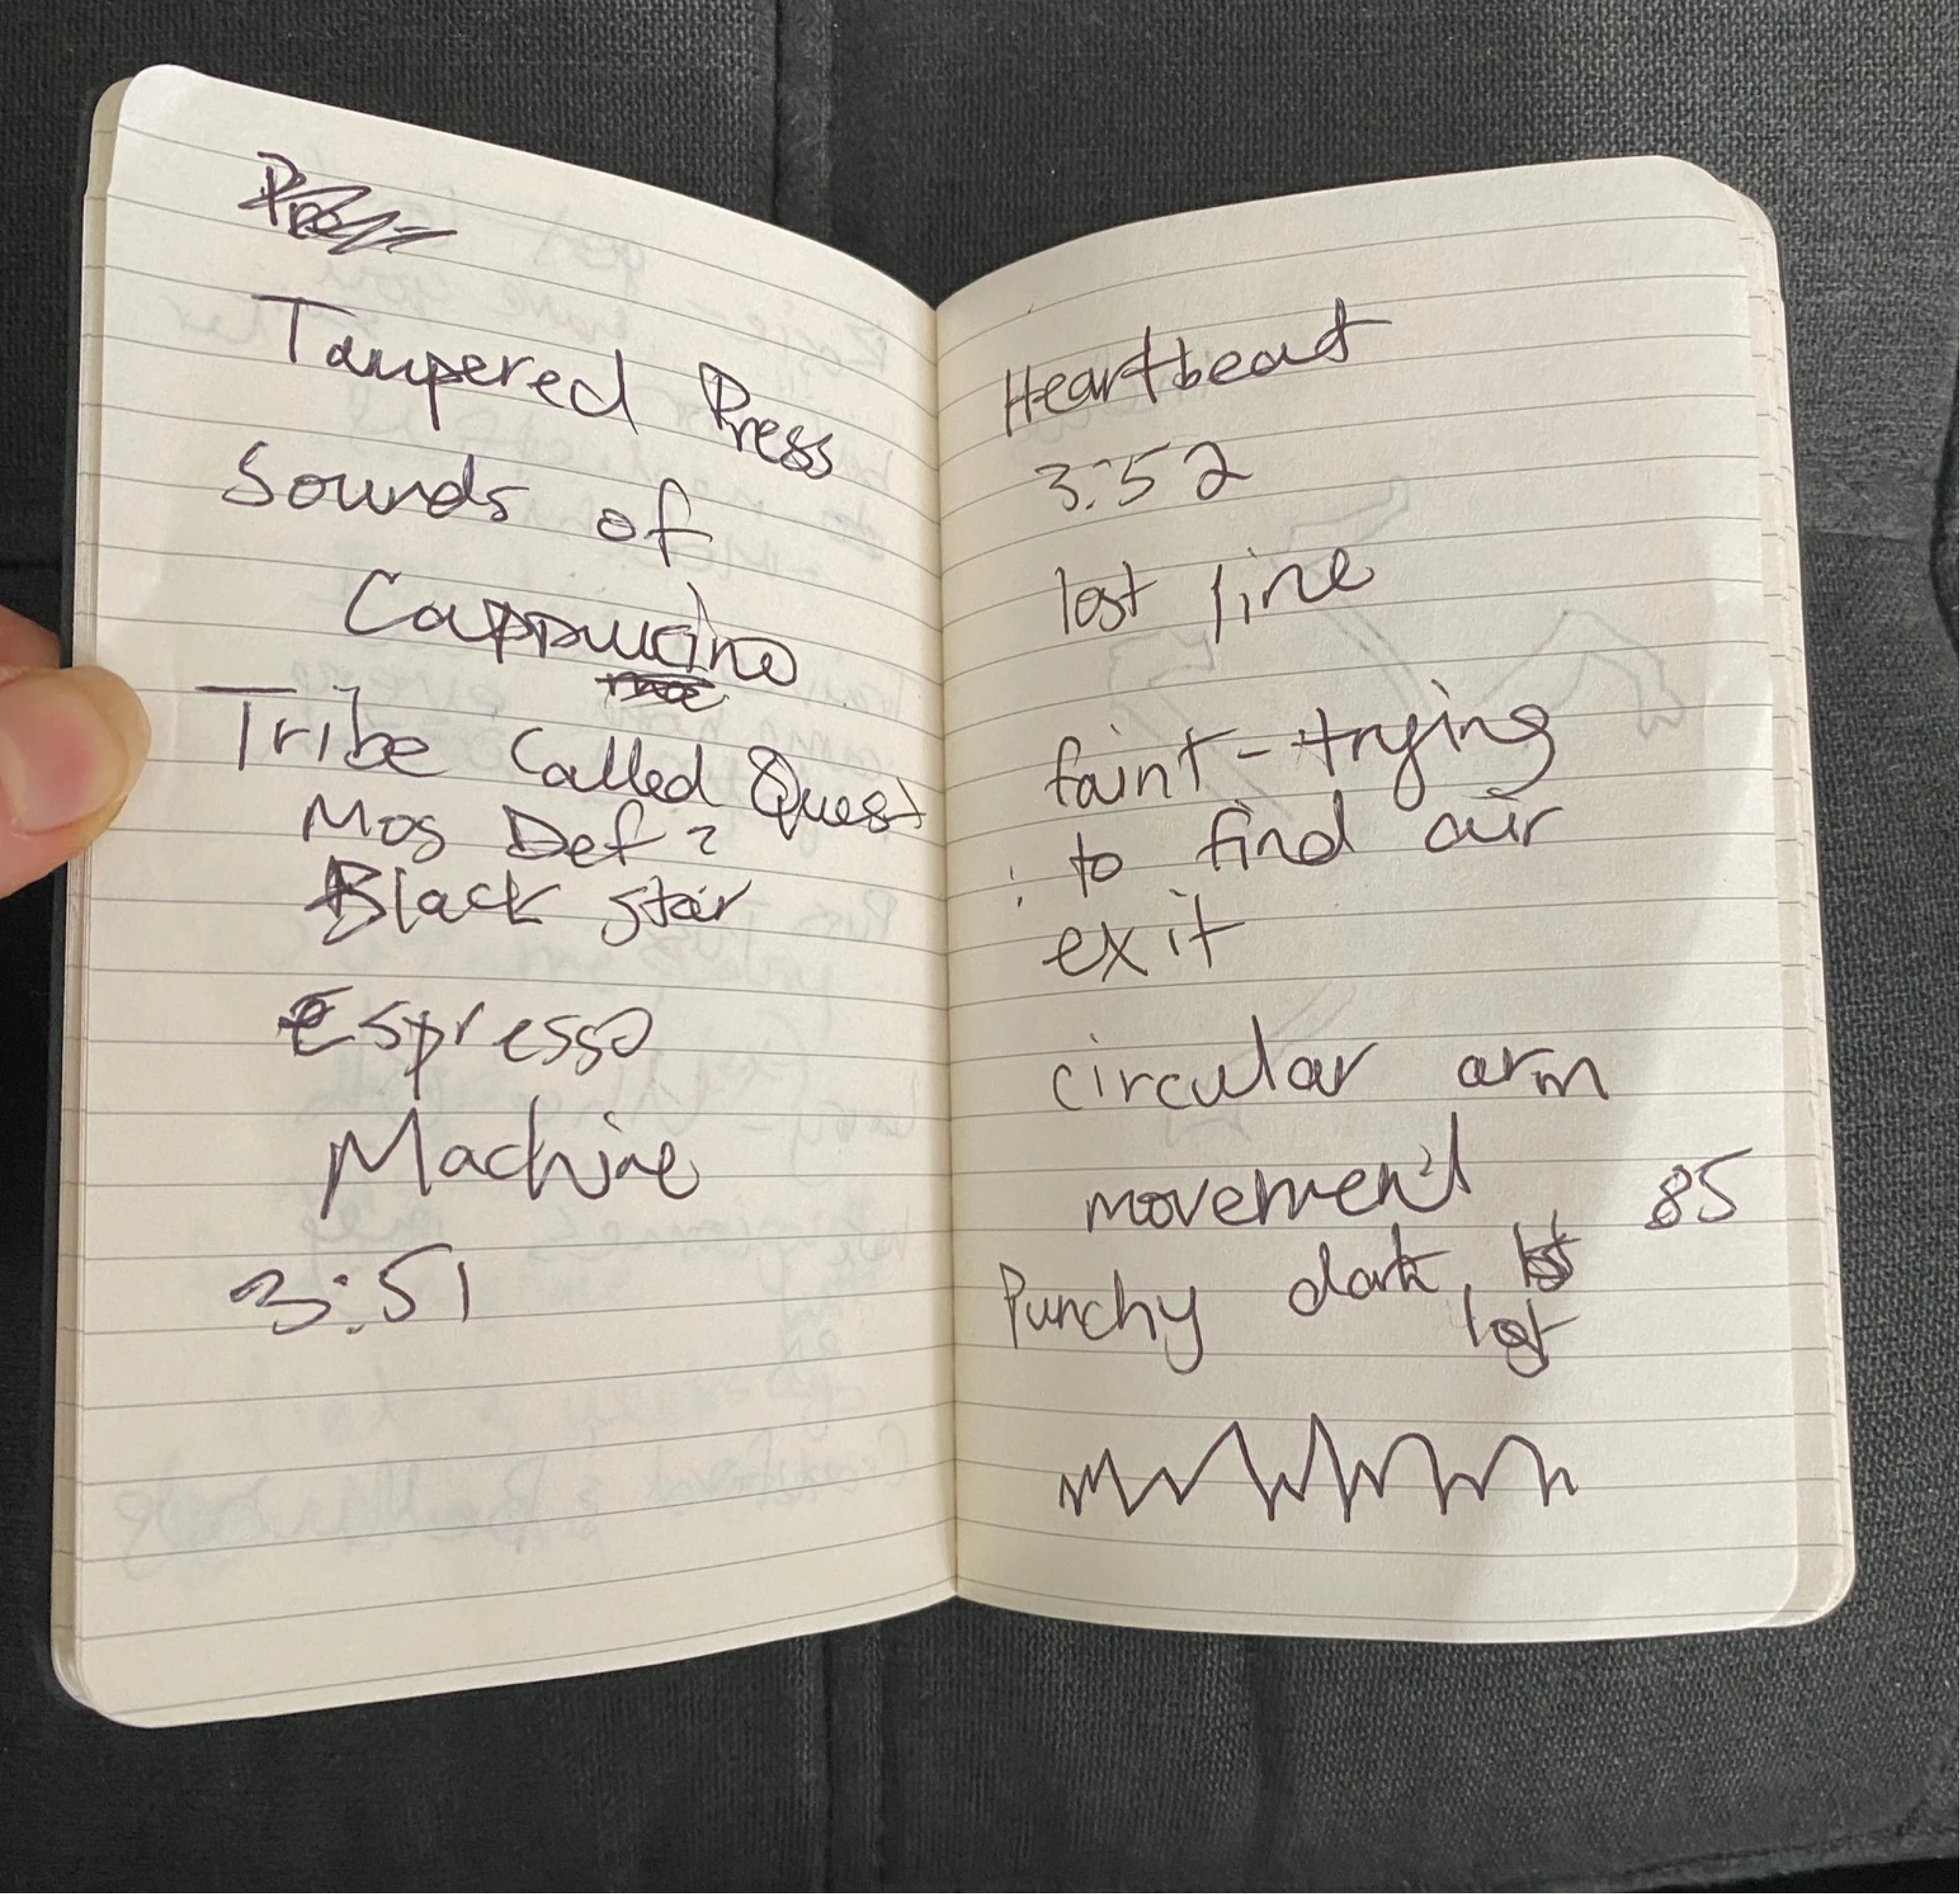 Tampered Press
Sounds of
Cappucino
Tribe Called Quest
Mos Def?
Black star
Espresso
Machine
3:51
Heartbeat
3:52
lost line
faint - trying
to find air
exit
circular arm
movement 85
Punchy dark,
lost